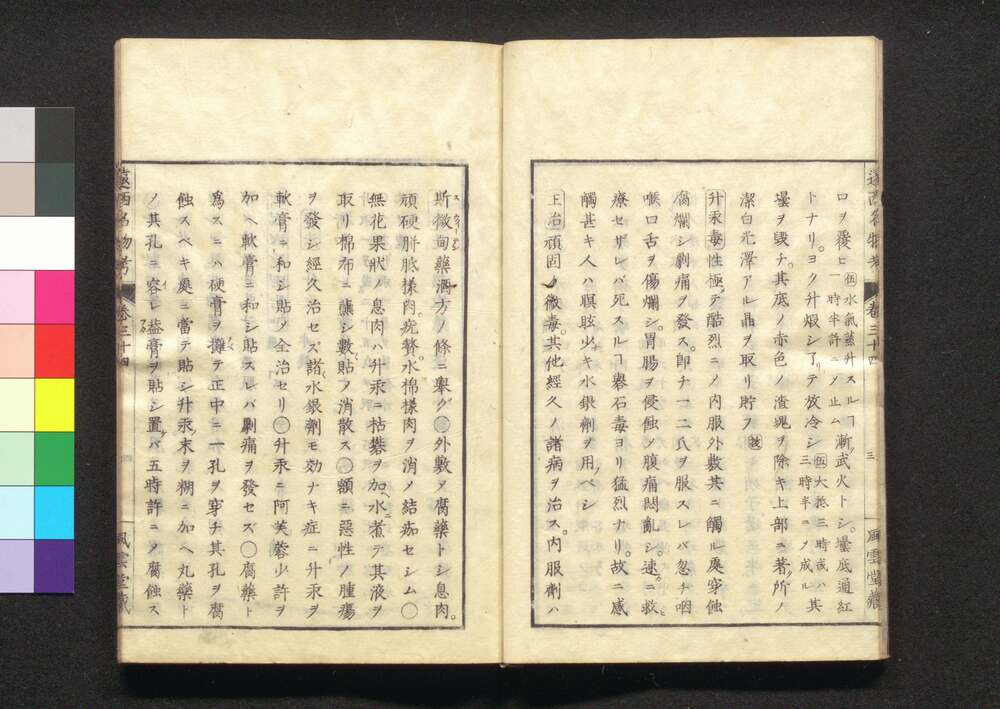 口ヲ覆ヒ伍水氣蒸升スルヿ漸武火トシ。壜底通紅
一時半許ニメ止ム
トナリ。ヨク升煆シ了テ放冷シ伍大抵二時或ハ三時半ニメ成ル其
壜ヲ毀チ。其底ノ赤色ノ渣滓ヲ除キ上部ニ著所ノ
潔白光澤アル晶ヲ取リ貯フ
升汞毒性極テ酷烈ニメ內服外敷其ニ觸ル處穿蝕
腐爛シ劇痛ヲ發ス。卽チ一二氏ヲ服スレバ忽チ咽
喉口舌ヲ傷爛シ。胃腸ヲ侵蝕メ腹痛悶亂シ。速ニ救
療セザレバ死スルヿ礜石毒ヨリ猛烈ナリ。故ニ感
觸甚キ人ハ瞑眩少キ水銀劑ヲ用ベシ
主治頑固ノ黴毒。其他經久ノ諸病ヲ治ス。內服劑ハ
遠西名物考
卷三十四
三
風雲堂藏
斯微甸藥酒方ノ條ニ擧グ〇外敷メ腐藥トシ息肉。
頑硬胼胝樣肉。疣贅。水棉樣肉ヲ消メ結痂セシム〇
無花果狀ノ息肉ハ升汞ニ枯礬ヲ加ヘ水煮テ其液ヲ
取リ棉布ニ蘸シ數貼メ消散ス〇額ニ惡性ノ腫瘍
ヲ發シ經久治セズ諸水銀劑モ効ナキ症ニ升汞ヲ
軟膏ニ和シ貼メ全治セリ〇升汞ニ阿芙蓉少許ヲ
加ヘ軟膏ニ和シ貼スレバ劇痛ヲ發セズ〇腐藥ト
爲スニハ硬膏ヲ攤テ正中ニ一孔ヲ穿チ其孔ヲ腐
蝕スベキ處ニ當テ貼シ升汞末ヲ糊ニ加ヘ丸藥ト
メ其孔ニ容レ蓋膏ヲ貼シ置バ五時許ニメ腐蝕ス
遠西名物考
卷三十四
風雲堂藏